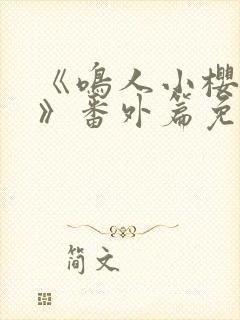 《鸣人小樱
》番外篇免
简文